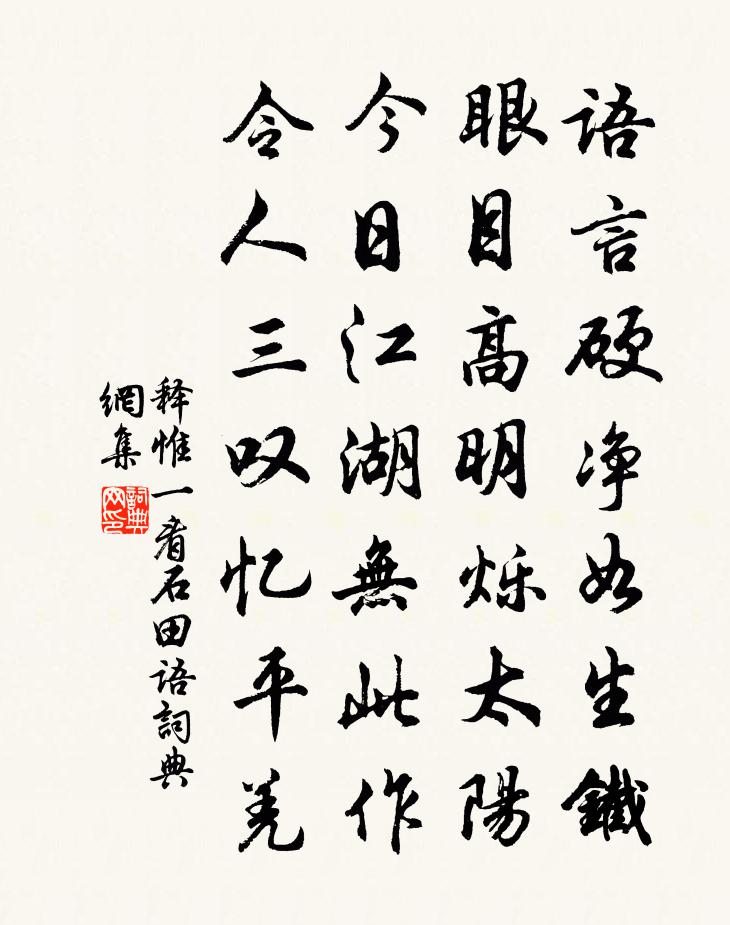 语言硬净如生鐵
眼目高明烁太陽
今日江湖無此作
令人三叹忆平羌
释惟一看石田语詞典
網集
詞典网印